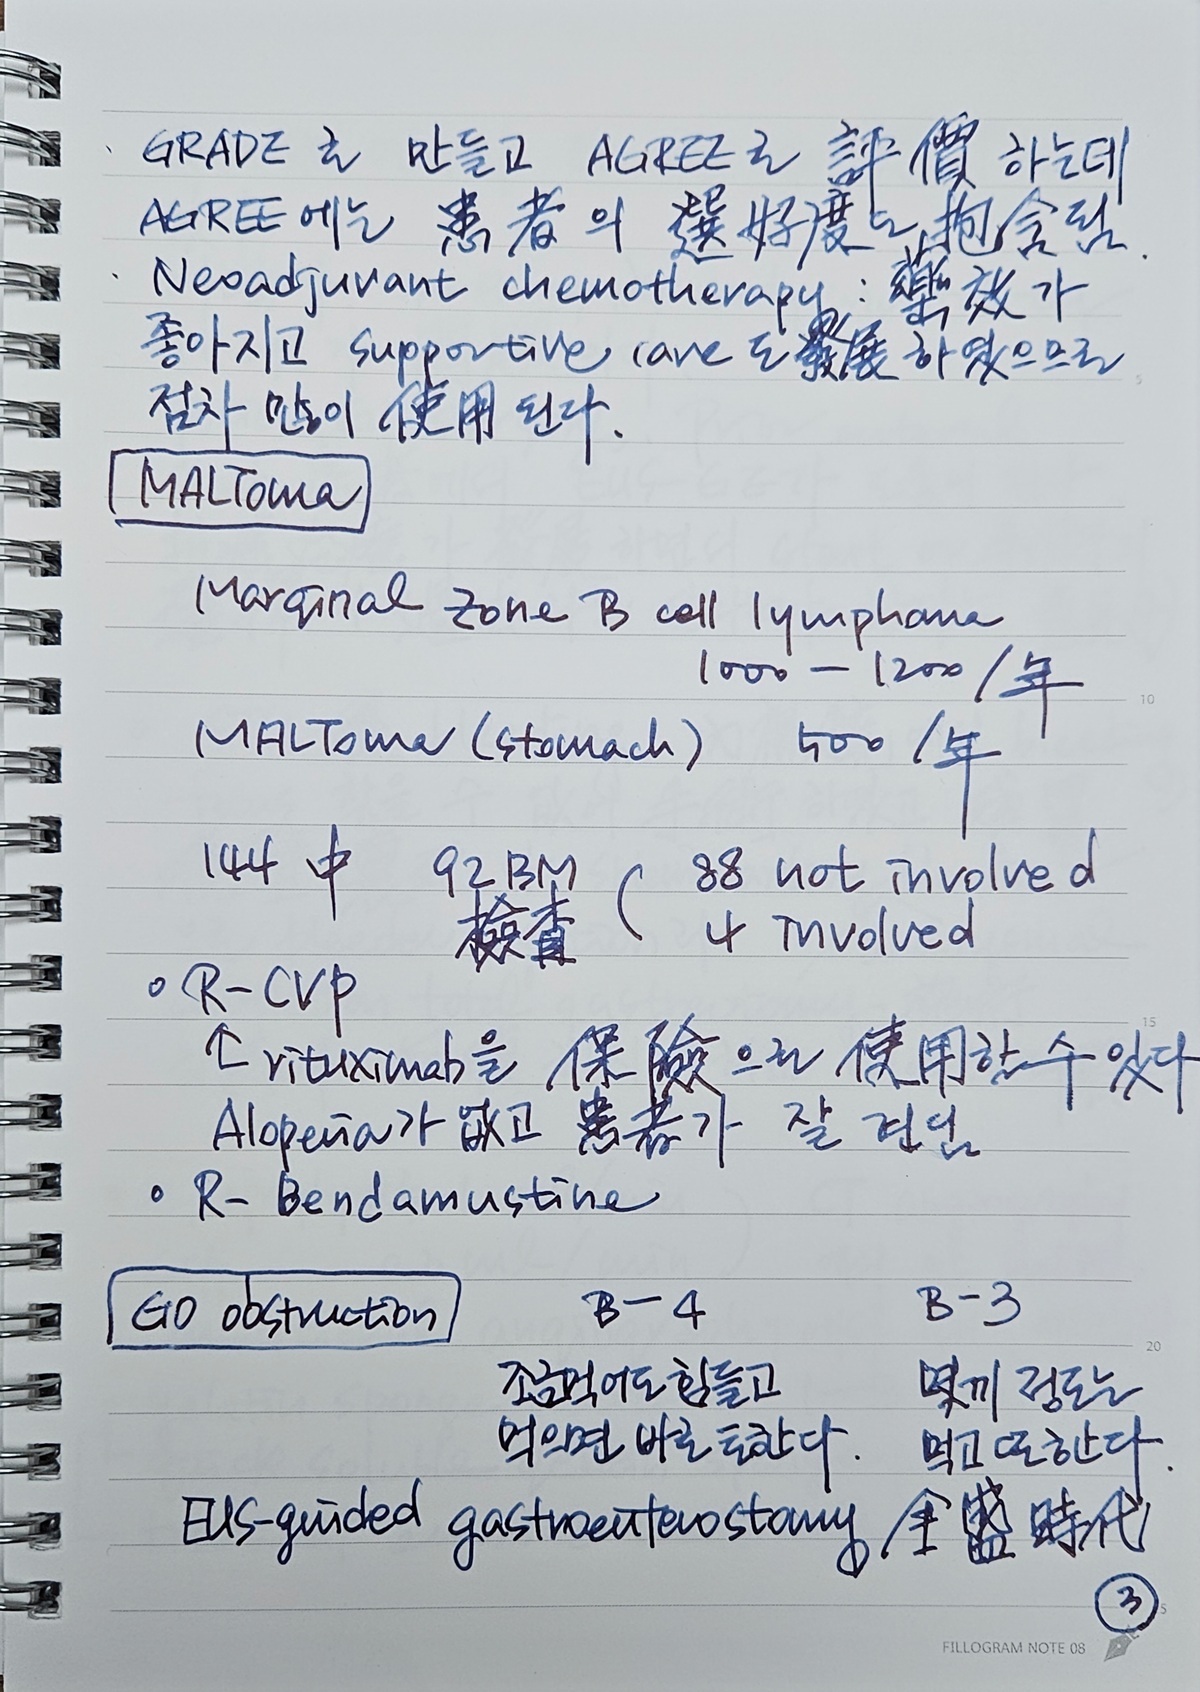 · GRADE로 만들고 AGREE로 評價하는데
AGREE에는 患者의 選好度도 抱含됨.
· Neoadjuvant chemotherapy : 藥效가
좋아지고 supportive care도 發展하였으므로
점차 많이 使用된다.
MALToma
Marginal zone B cell lymphoma
1000 - 1200 /年
MALToma (stomach) 500 /年
144 中 92 BM ( 88 not involved
檢査 4 involved
∘ R-CVP
↑ rituximab을 保險으로 使用할 수 있다
Alopecia가 없고 患者가 잘 견딤
∘ R- Bendamustine
GO obstruction B-4 B-3
조금먹어도 힘들고 몇끼 정도는
먹으면 바로 토한다. 먹고 토한다.
EUS-guided gastroenterostomy 全盛時代
3
5
10
15
20
FILLOGRAM NOTE 08